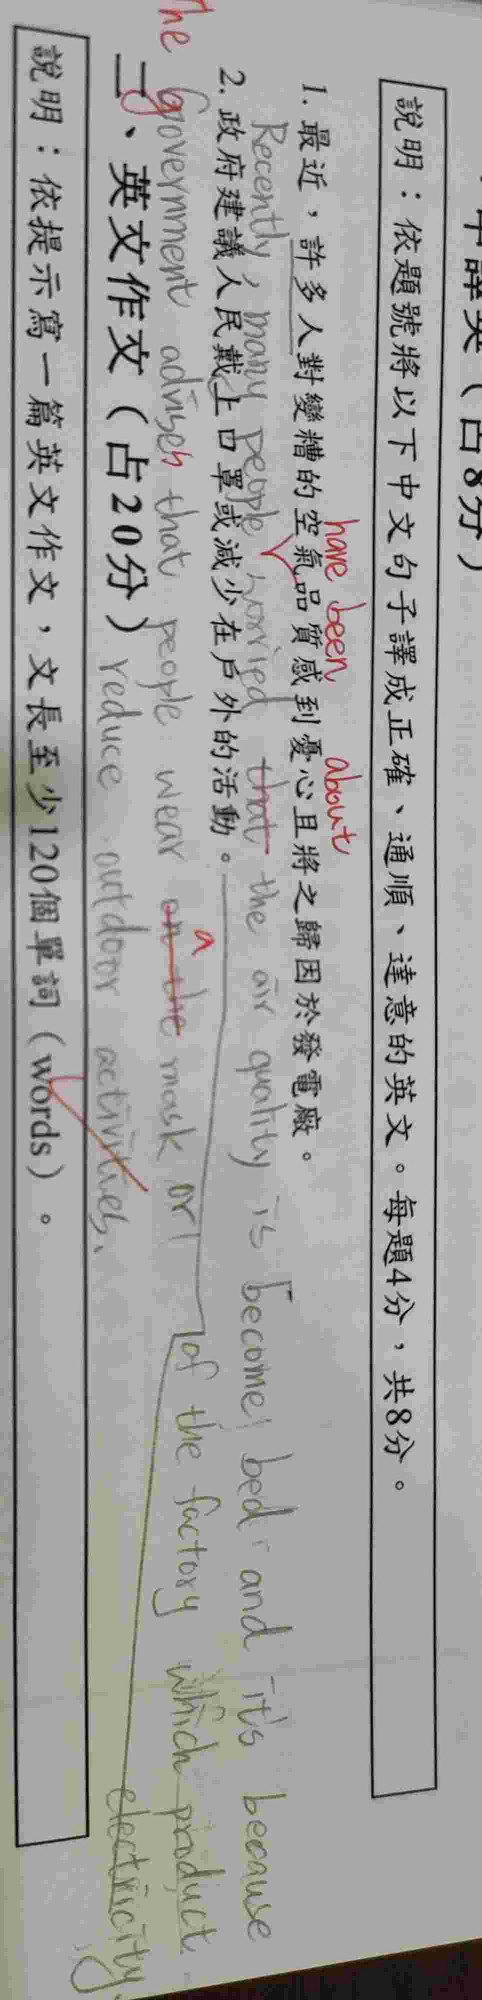 中譯英(占8分)
說明:依題號將以下中文句子譯成正確、通順、達意的英文。每題4分,共8分。
1. 最近,許多人對變糟的空氣品質感到憂心且將之歸因於發電廠。
have been about
Recently, many people worried that the air quality is become bed and it's because
of the factory which product electricity.
2. 政府建議人民戴上口罩或減少在戶外的活動。
The government advises that people wear on the a mask or
reduce outdoor activities.
二、英文作文(占20分)
說明:依提示寫一篇英文作文,文長至少120個單詞(words)。